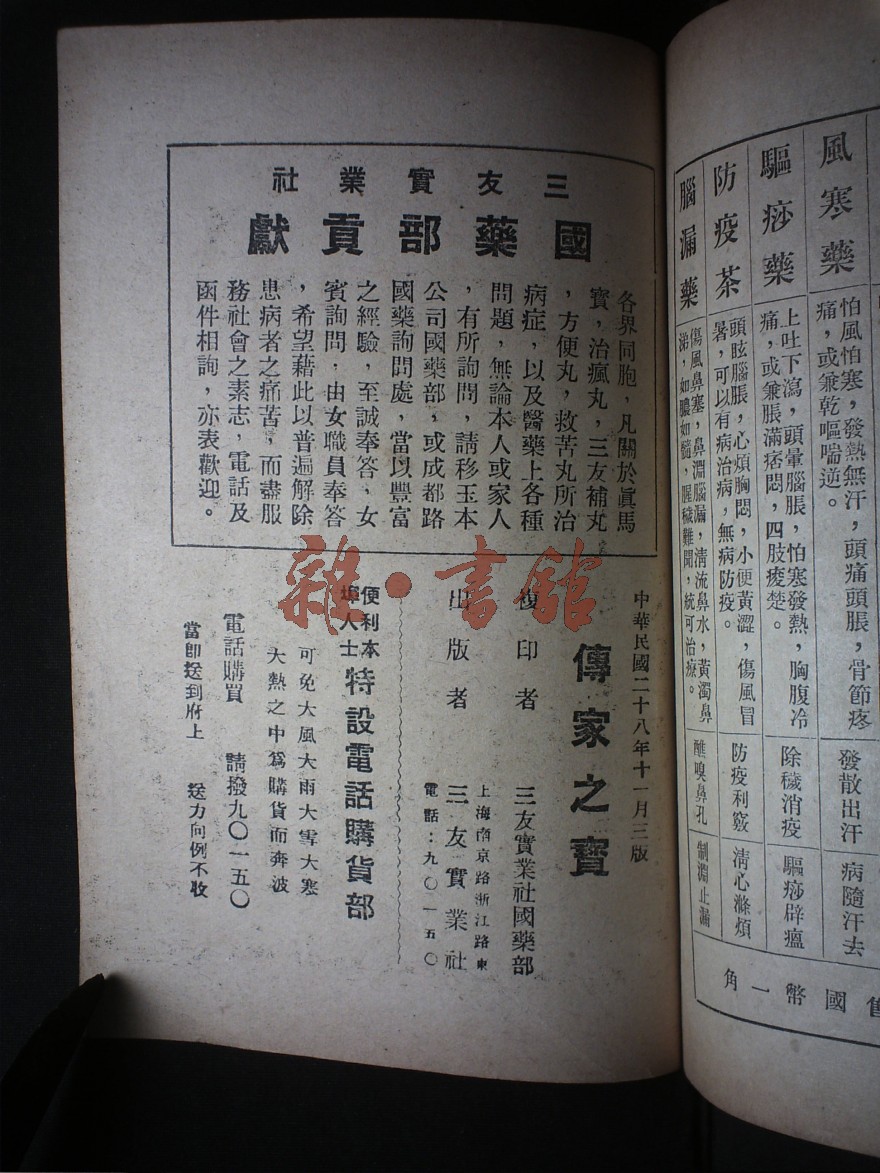 風寒藥
怕風怕寒，發熱無汗，頭痛頭脹，骨節疼
痛，或兼乾嘔喘逆。
發散出汗
病隨汗去
驅痧藥
上吐下瀉，頭暈腦脹，怕寒發熱，胸腹冷
痛，或兼脹滿痞悶，四肢痠楚。
除穢消疫
驅痧辟瘟
防疫茶
頭眩腦脹，心煩胸悶，小便黃澀，傷風冒
暑，可以有病治病，無病防疫。
防疫利竅
清心滌煩
腦漏藥
傷風鼻塞，鼻淵腦漏，清流鼻水，黃濁鼻
涕，如膿如髓，腥穢難聞，統可治療。
醮嗅鼻孔
制淵止漏
售國幣一角
三友實業社
國藥部貢獻
各界同胞，凡關於眞馬
寶，治瘋丸，三友補丸
，方便丸，救苦丸所治
病症，以及醫藥上各種
問題，無論本人或家人
，有所詢問，請移玉本
公司國藥部，或成都路
國藥詢問處，當以豐富
之經驗，至誠奉答，女
賓詢問，由女職員奉答
，希望藉此以普遍解除
患病者之痛苦，而盡服
務社會之素志，電話及
函件相詢，亦表歡迎。
中華民國二十八年十一月三版
傳家之寶
複印者　三友實業社國藥部
出版者　三友實業社
上海南京路浙江路東
電話：九〇一五〇
便利本埠人士
特設電話購貨部
可免大風大雨大雪大寒
大熱之中爲購貨而奔波
電話購買　請撥九〇一五〇
當即送到府上　送力向例不收
雜·書館